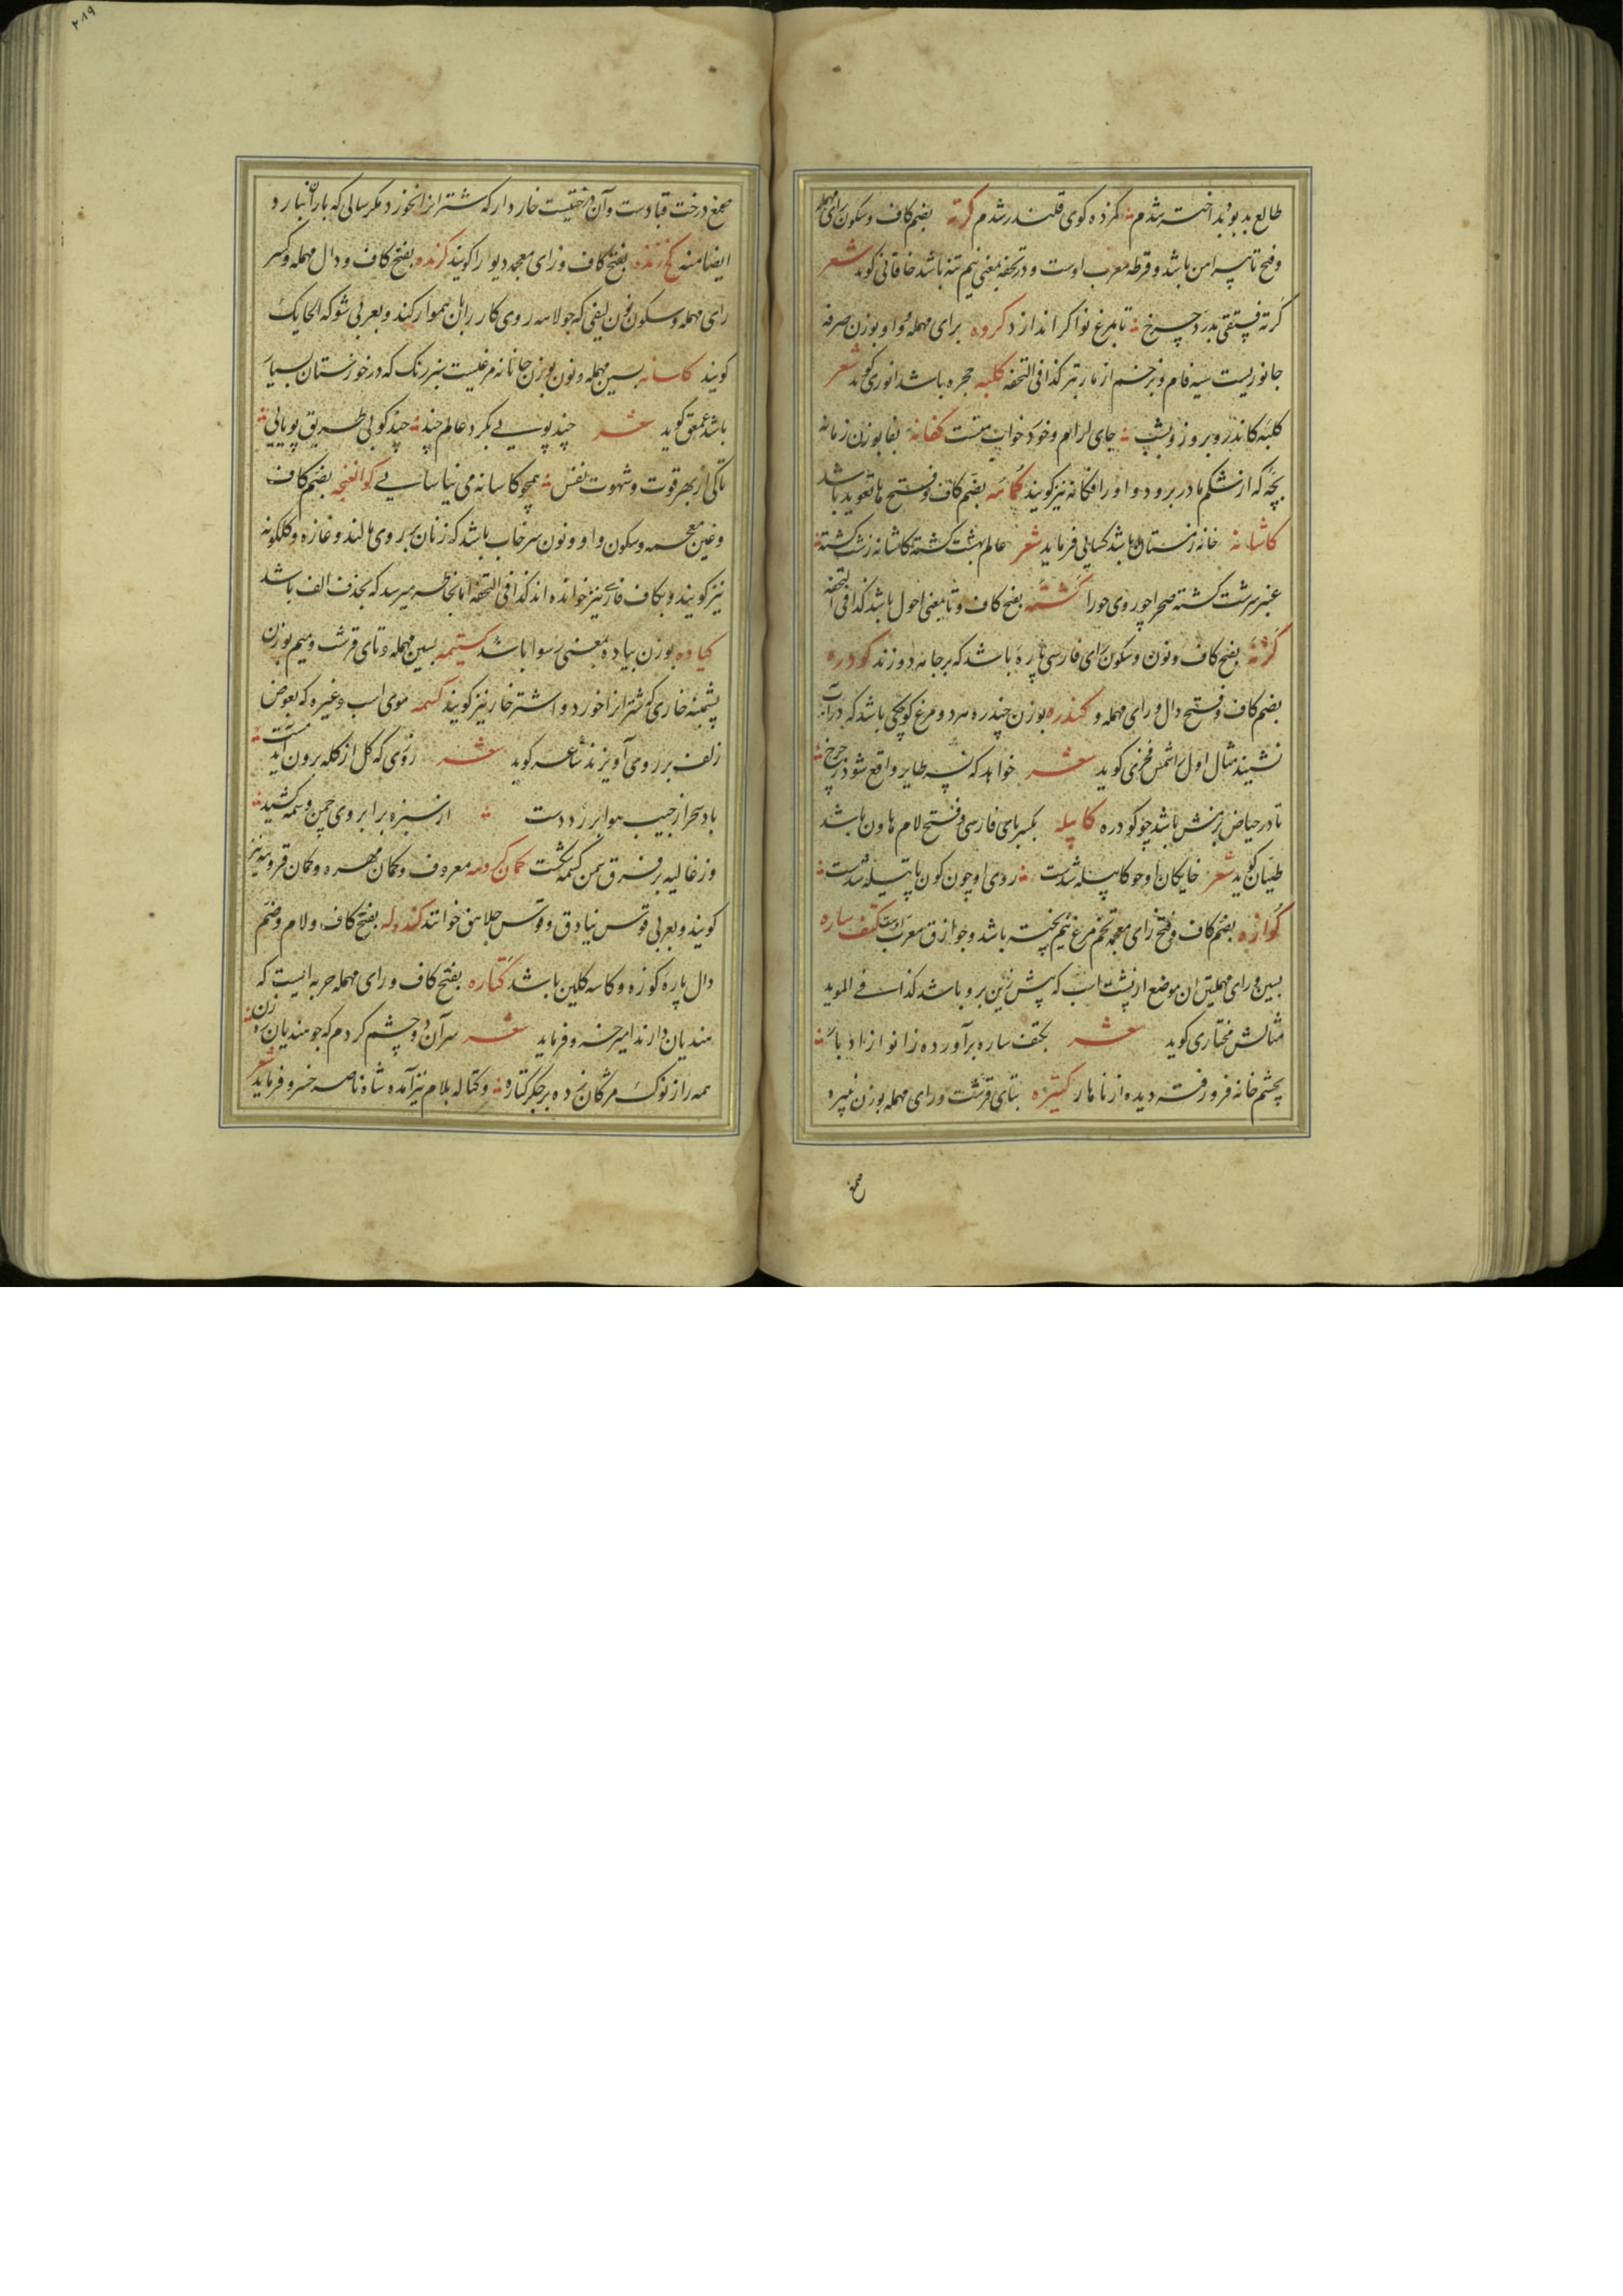 طالع بد بود و بد اختر شدم ؞ کم زده کوی قلندر شدم کرته بضم کاف و سکون رای مهمله
و فتح تا پیراهن باشد و قرطه معرب اوست و در تحفه بمعنی نیم تنه باشد خاقانی کوید شعر
کرته فستقی بدرد چرخ ؞ تا بمرغ نوا کر اندازد کروه برای مهمله و واو بوزن صرفه
جانوریست سیه فام و زخم از مار بتر کذا فی التحفه کلبه حجره باشد انوری کوید شعر
کلبه کاندرو بروز و بشب ؞ جای آرام و خورد و خواب منست کفانه بفا بوزن زمانه
بچه که از شکم مادر برود و او را فکانه نیز کویند کماسه بضم کاف و فتح ها تعوید باشد
کاشانه خانه زمستان باشد کسایی فرماید شعر عالم بهشت کشته کاشانه زشت کشته ؞
عنبر سرشت کشته صحرا چو روی حورا کشته بفتح کاف و تا بمعنی احول باشد کذا فی التحفه
کژنه بفتح کاف و نون و سکون زای فارسی پاره باشد که بر جامه دوزند کودره
بضم کاف و فتح دال و رای مهمله و کندره بوزن چندره هر دو مرغ کوچکی باشد که در آب
نشیند مثال اول شمس فخری کوید شعر خواهد که نسر طایر واقع شود ز چرخ ؞
تا در حیاض بزمش باشد چو کودره کاپیله بکسر بای فارسی و فتح لام هاون باشد
طیان کوید شعر خایکان او چو کاپیله شدست ؞ روی او چون کون پاتیله شدست ؞
کوازه بضم کاف و فتح زای معجمه تخم مرغ نیم پخته باشد و جوازق معرب اوست کتف ساره
بسین و رای مهملتین آن موضع از پشت اسب که پیش زین برو باشد کذا فی الموید
مثالش مختاری کوید شعر بکتف ساره برآورده زانو از ادبار ؞
بچشم خانه فرو رفته دیده از ناهار کتیره بتای قرشت و رای مهمله بوزن نبیره
صمغ
۲۸۹
صمغ درخت قتادست و آن درختیست خاردار که شتر ازان نخورد مکر سالی که باران نبارد
ایضا منه کج زنده بفتح کاف و زای معجمه دیوار را کویند کرنده بفتح کاف و دال مهمله و کسر
رای مهمله و سکون نون لیفی که جولاهه روی کار را بآن هموار کند و بعربی شوکة الحایک
کویند کاسانه بسین مهمله و نون بوزن جانانه مرغیست سبز رنک که در خوزستان بسیار
باشد عمعق کوید شعر چند پویی بکرد عالم چند ؞ چند کوبی طریق پویایی ؞
تا کی از بهر قوت و شهوت نفس ؞ همچو کاسانه می نیاسایی کوالغنجه بضم کاف
و غین معجمه و سکون واو و نون سرخاب باشد که زنان بر روی مالند و غازه و کلکونه
نیز کویند و بکاف فارسی نیز خوانده اند کذا فی التحفه اما بخاطر میرسد که بحذف الف باشد
کیاده بوزن پیاده بمعنی رسوا باشد کستیمه بسین مهمله و تای قرشت و میم بوزن
پشمینه خاری که شتر آنرا خورد و اشتر خار نیز کویند کسمه موی اسب و غیره که بعوض
زلف بر رو می آویزند شاعر کوید شعر روزی که کل از کله برون آید مست ؞
باد سحر از جیب هوا برزد دست ؞ از سبزه بر ابروی چمن وسمه کشید ؞
وز غالیه بر فرق سمن کسمه شکست کمان کروهه معروف و کمان مهره و کمان قروسه نیز
کویند و بعربی قوس بنادق و قوس جلاهق خوانند کندوله بفتح کاف و لام و ضم
دال پاره کوزه و کاسه کلین باشد کتاره بفتح کاف و رای مهمله حربه ایست که
هندیان دارند امیر خسرو فرماید شعر سر آن دو چشم کردم که چو هندیان ره زن ؞
همه را ز نوک مژکان زده بر جکر کتاره ؞ و کتاله بلام نیز آمده شاه ناصر خسرو فرماید شعر